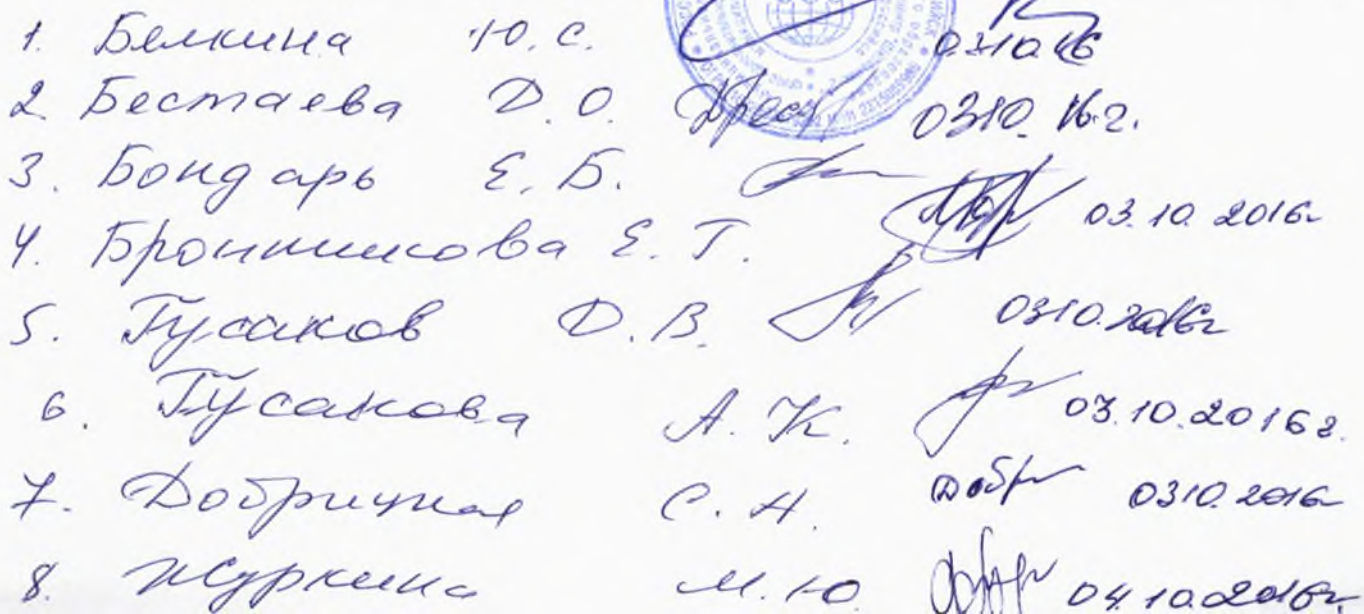 1. Белкина Ю.С. 03.10.16
2. Бестаева Д.О. 03.10.16г.
3. Бондарь Е.Б.
4. Бронникова Е.Т. 03.10.2016г
5. Гусаков Д.В. 03.10.2016г
6. Гусакова А.К. 03.10.2016г.
7. Добрицкая С.Н. Добр 03.10.2016г
8. Журкина М.Ю. 04.10.2016г.